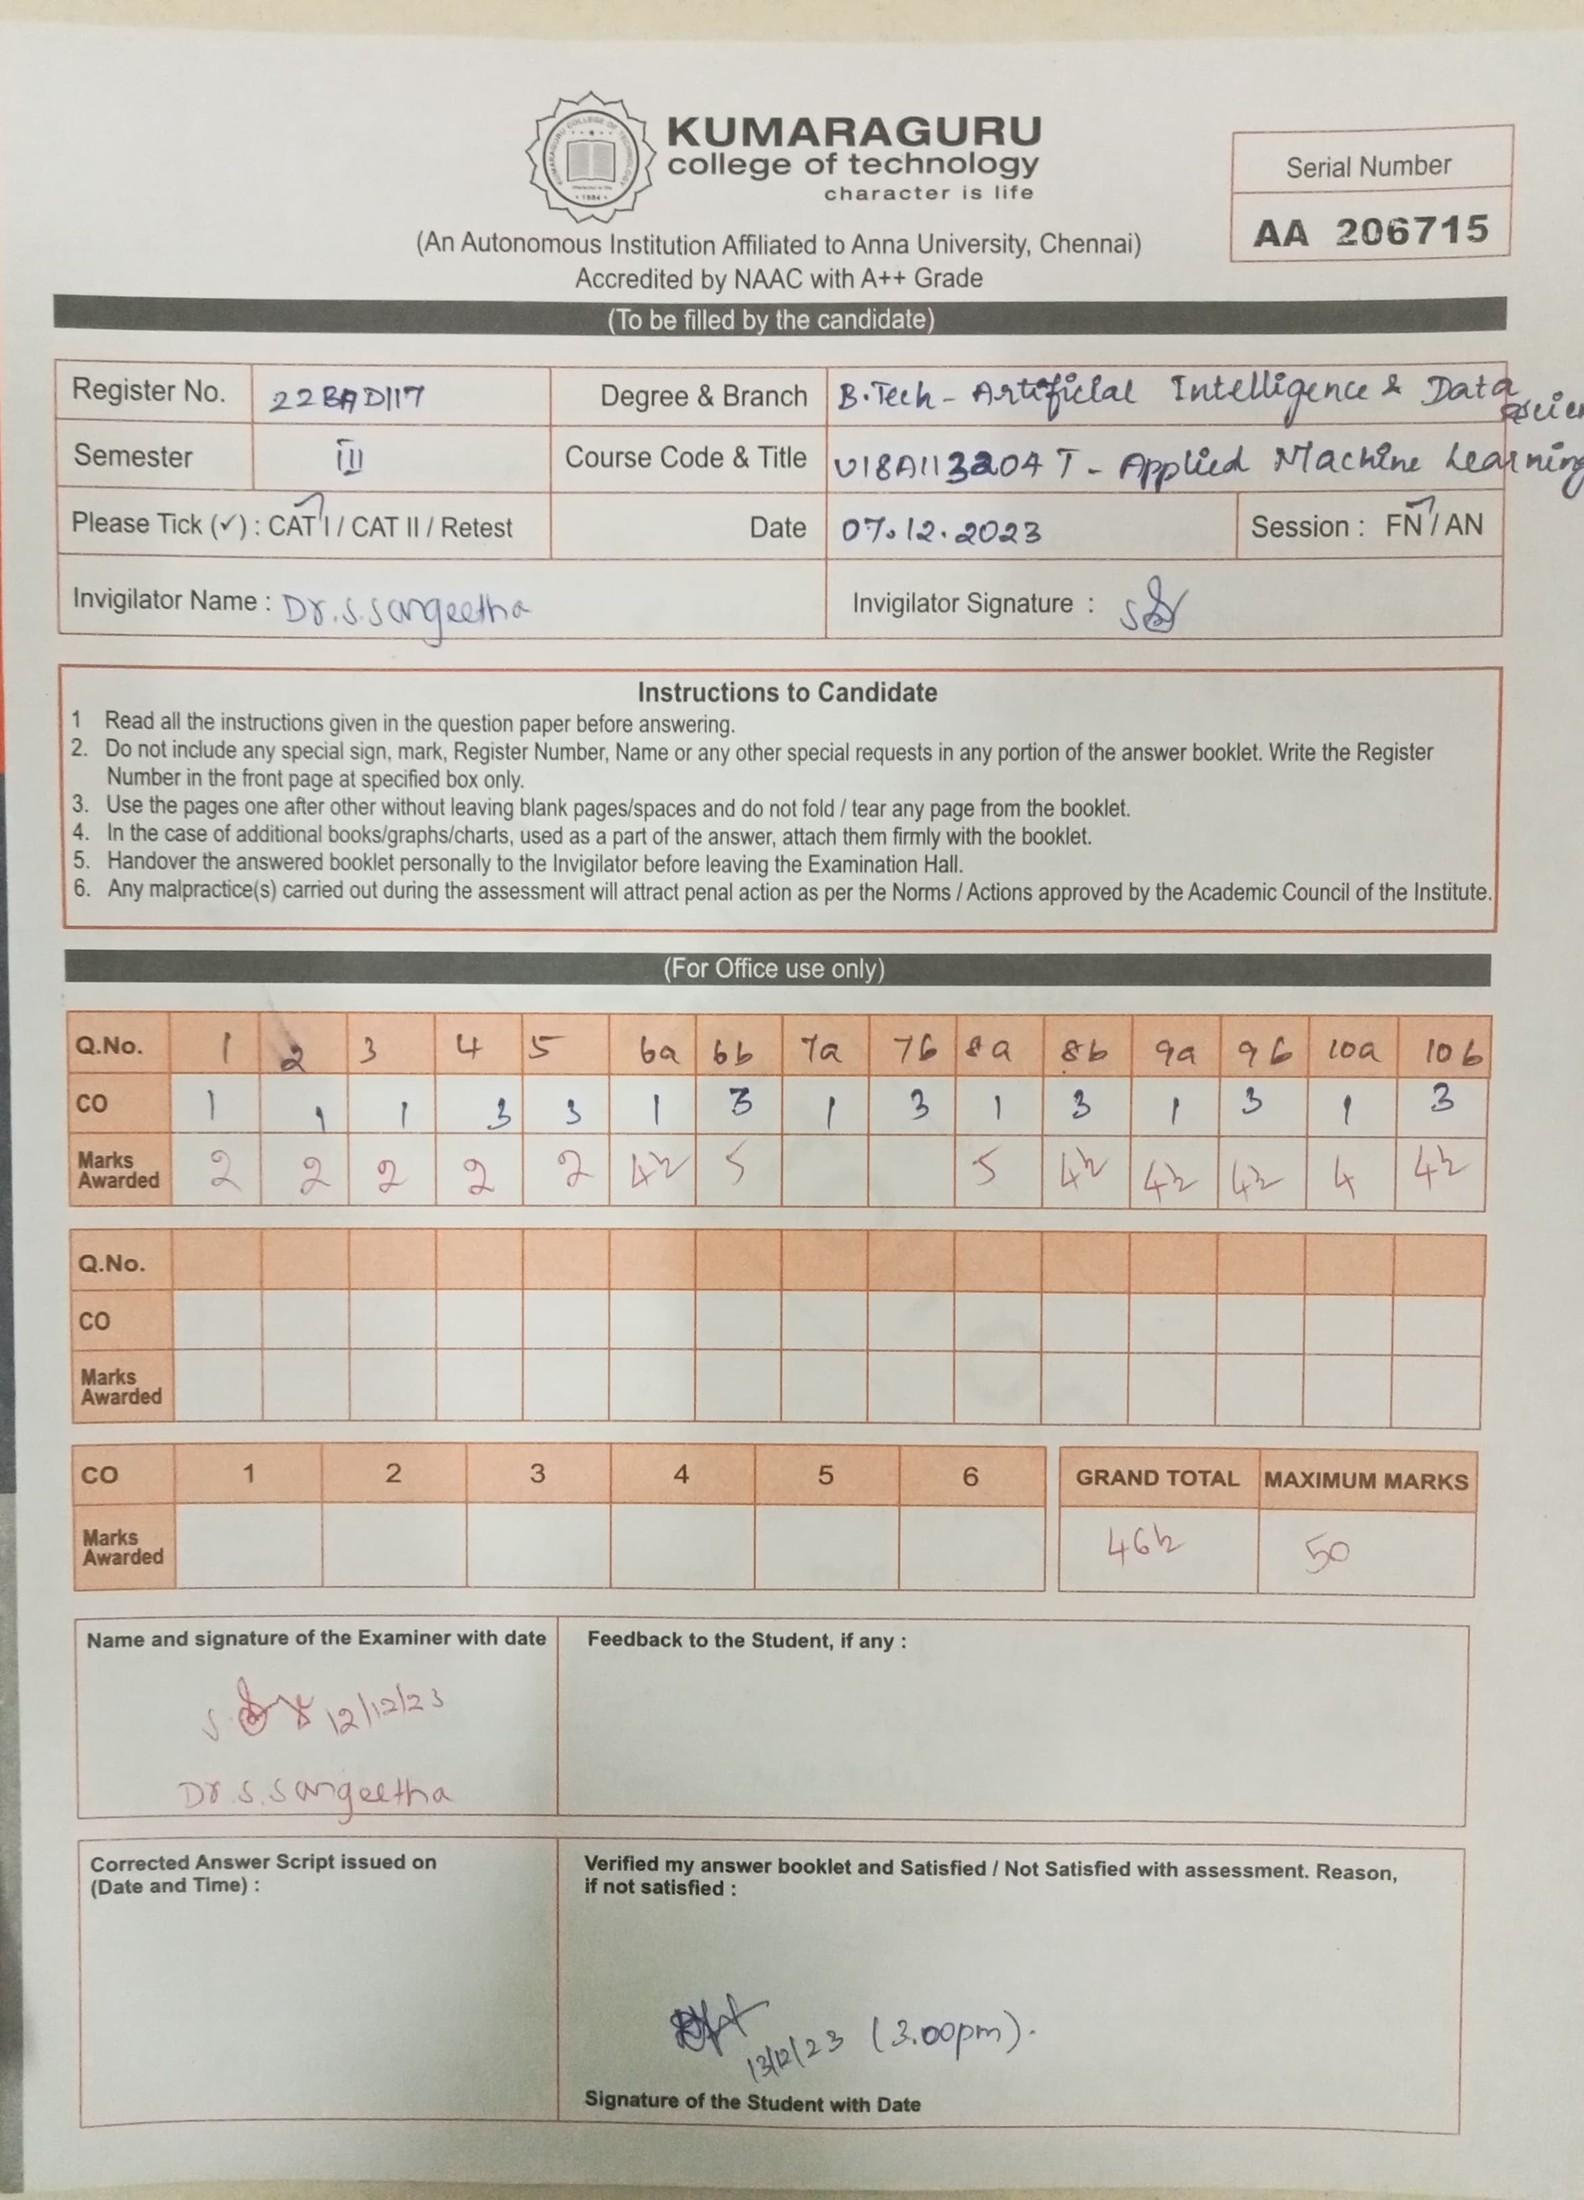 KUMARAGURU
college of technology
character is life
(An Autonomous Institution Affiliated to Anna University, Chennai)
Accredited by NAAC with A++ Grade
Serial Number
AA 206715
(To be filled by the candidate)
Register No. 22BAD117 Degree & Branch B.Tech - Artificial Intelligence & Data
Semester III Course Code & Title U18AII3204T - Applied Machine Learning
Please Tick (✓) : CAT I / CAT II / Retest Date 07.12.2023 Session : FN / AN
Invigilator Name : Dr.S.Sangeetha Invigilator Signature :
Instructions to Candidate
1 Read all the instructions given in the question paper before answering.
2. Do not include any special sign, mark, Register Number, Name or any other special requests in any portion of the answer booklet. Write the Register
Number in the front page at specified box only.
3. Use the pages one after other without leaving blank pages/spaces and do not fold / tear any page from the booklet.
4. In the case of additional books/graphs/charts, used as a part of the answer, attach them firmly with the booklet.
5. Handover the answered booklet personally to the Invigilator before leaving the Examination Hall.
6. Any malpractice(s) carried out during the assessment will attract penal action as per the Norms / Actions approved by the Academic Council of the Institute.
(For Office use only)
Q.No. 1 2 3 4 5 6a 6b 7a 7b 8a 8b 9a 9b 10a 10b
CO 1 1 1 3 3 1 3 1 3 1 3 1 3 1 3
Marks Awarded 2 2 2 2 2 4½ 5 5 4½ 4½ 4½ 4 4½
Q.No.
CO
Marks Awarded
CO 1 2 3 4 5 6 GRAND TOTAL MAXIMUM MARKS
Marks Awarded 46½ 50
Name and signature of the Examiner with date
12/12/23
Dr S.Sangeetha
Feedback to the Student, if any :
Corrected Answer Script issued on
(Date and Time) :
Verified my answer booklet and Satisfied / Not Satisfied with assessment. Reason,
if not satisfied :
13/12/23 (3.00pm).
Signature of the Student with Date